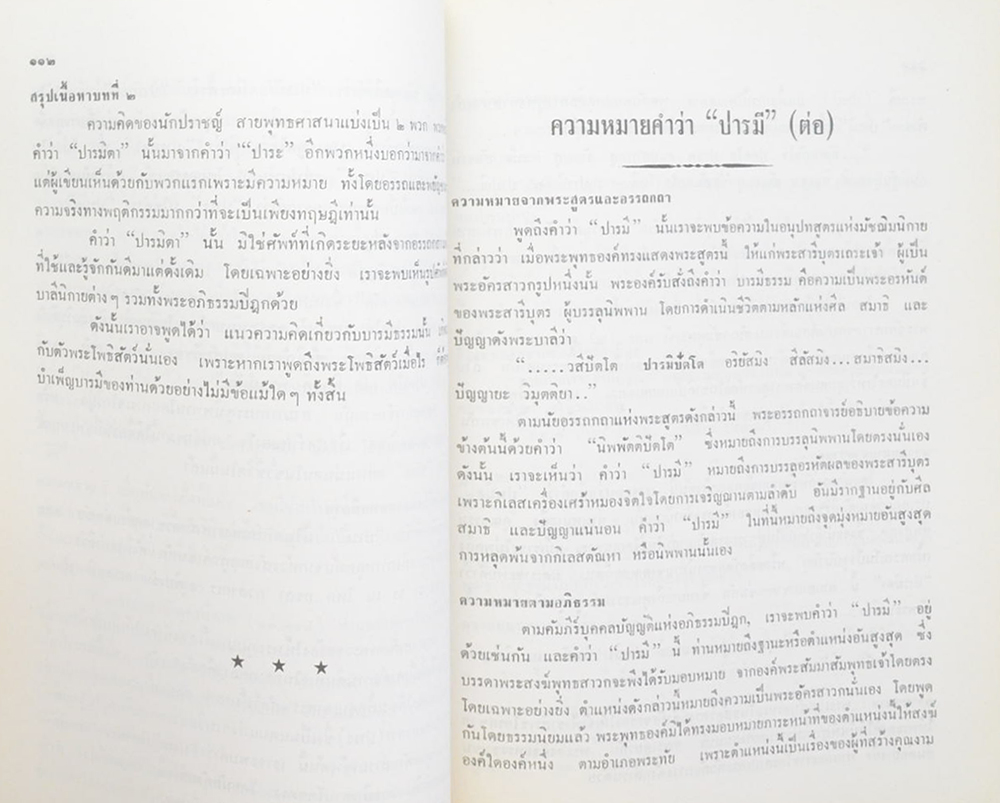 ๑๑๒
สรุปเนื้อหาบทที่ ๒
ความคิดของนักปราชญ์ สายพุทธศาสนาแบ่งเป็น ๒ พวก
คำว่า “ปารมิตา” นั้นมาจากคำว่า “‘ปาระ” อีกพวกหนึ่งบอกว่ามาจาก
แต่ผู้เขียนเห็นด้วยกับพวกแรกเพราะมีความหมาย ทั้งโดยอรรถและ
ความจริงทางพฤติกรรมมากกว่าที่จะเป็นเพียงทฤษฎีเท่านั้น
คำว่า “ปารมิตา” นั้น มิใช่ศัพท์ที่เกิดระยะหลังจาก
ที่ใช้และรู้จักกันดีมาแต่ดั้งเดิม โดยเฉพาะอย่างยิ่ง เราจะพบเห็น
บาลีนิกายต่างๆ รวมทั้งพระอภิธรรมปิฎกด้วย
ดังนั้นเราอาจพูดได้ว่า แนวความคิดเกี่ยวกับบารมีธรรมนั้น
กับตัวพระโพธิสัตว์นั่นเอง เพราะหากเราพูดถึงพระโพธิสัตว์เมื่อไร
บำเพ็ญบารมีของท่านด้วยอย่างไม่มีข้อแม้ใดๆ ทั้งสิ้น
ความหมายคำว่า “ปารมี” (ต่อ)
ความหมายจากพระสูตรและอรรถกถา
พูดถึงคำว่า “ปารมี” นั้นเราจะพบข้อความในอนุปทสูตรแห่งมัชฌิมนิกาย
ที่กล่าวว่า เมื่อพระพุทธองค์ทรงแสดงพระสูตรนี้ ให้แก่พระสารีบุตรเถระเจ้า ผู้เป็น
พระอัครสาวกรูปหนึ่งนั้น พระองค์รับสั่งถึงคำว่า บารมีธรรม คือความเป็นพระอรหันต์
ของพระสารีบุตร ผู้บรรลุนิพพาน โดยการดำเนินชีวิตตามหลักแห่งศีล สมาธิ และ
ปัญญาดังพระบาลีว่า
“.....วสีปัตโต ปารมิปัตโต อริยัสมิง สีลัสมิง...สมาธิสมิง...
ปัญญายะ วิมุตติยา..”
ตามนัยอรรถกถาแห่งพระสูตรดังกล่าวนี้ พระอรรถกถาจารย์อธิบายข้อความ
ข้างต้นนี้ด้วยคำว่า “นิพพัตติปัตโต” ซึ่งหมายถึงการบรรลุนิพพานโดยตรงนั่นเอง
ดังนั้น เราจะเห็นว่า คำว่า “ปารมี” หมายถึงการบรรลุอรหัตผลของพระสารีบุตร
เพราะกิเลสเครื่องเศร้าหมองจิตใจโดยการเจริญฌานตามลำดับ อันมีรากฐานอยู่กับศีล
สมาธิ และปัญญาแน่นอน คำว่า “ปารมี” ในที่นี้หมายถึงจุดมุ่งหมายอันสูงสุด
การหลุดพ้นจากกิเลสตัณหา หรือนิพพานนั้นเอง
ความหมายตามอภิธรรม
ตามคัมภีร์บุคคลบัญญัติแห่งอภิธรรมปิฎก, เราจะพบคำว่า “ปารมี” อยู่
ด้วยเช่นกัน และคำว่า “ปารมี” นี้ ท่านหมายถึงฐานะหรือตำแหน่งอันสูงสุด ซึ่ง
บรรดาพระสงฆ์พุทธสาวกจะพึงได้รับมอบหมาย จากองค์พระสัมมาสัมพุทธเจ้าโดยตรง
โดยเฉพาะอย่างยิ่ง ตำแหน่งดังกล่าวนี้หมายถึงความเป็นพระอัครสาวกนั่นเอง โดยพูด
กันโดยธรรมนิยมแล้ว พระพุทธองค์มิได้ทรงมอบหมายภาระหน้าที่ของตำแหน่งนี้ให้สงฆ์
องค์ใดองค์หนึ่ง ตามอำเภอพระทัย เพราะตำแหน่งนี้เป็นเรื่องของผู้ที่สร้างคุณงาม